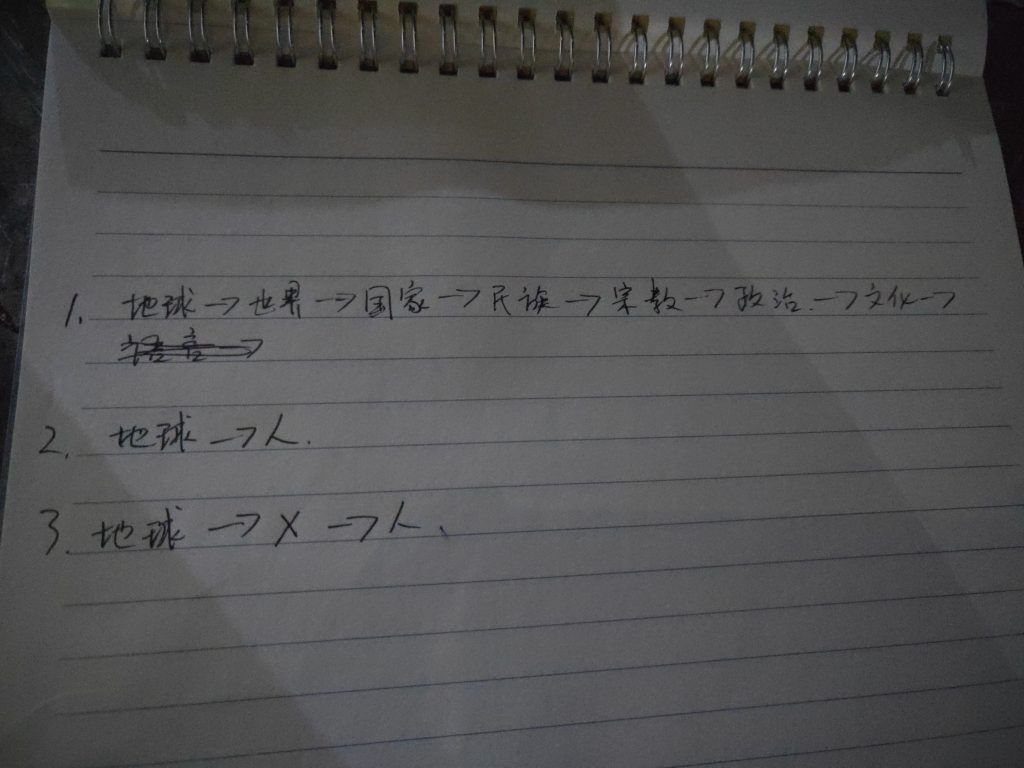 1. 地球→世界→国家→民族→宗教→政治.→文化→
语言→
2. 地球→人.
3. 地球→X→人、